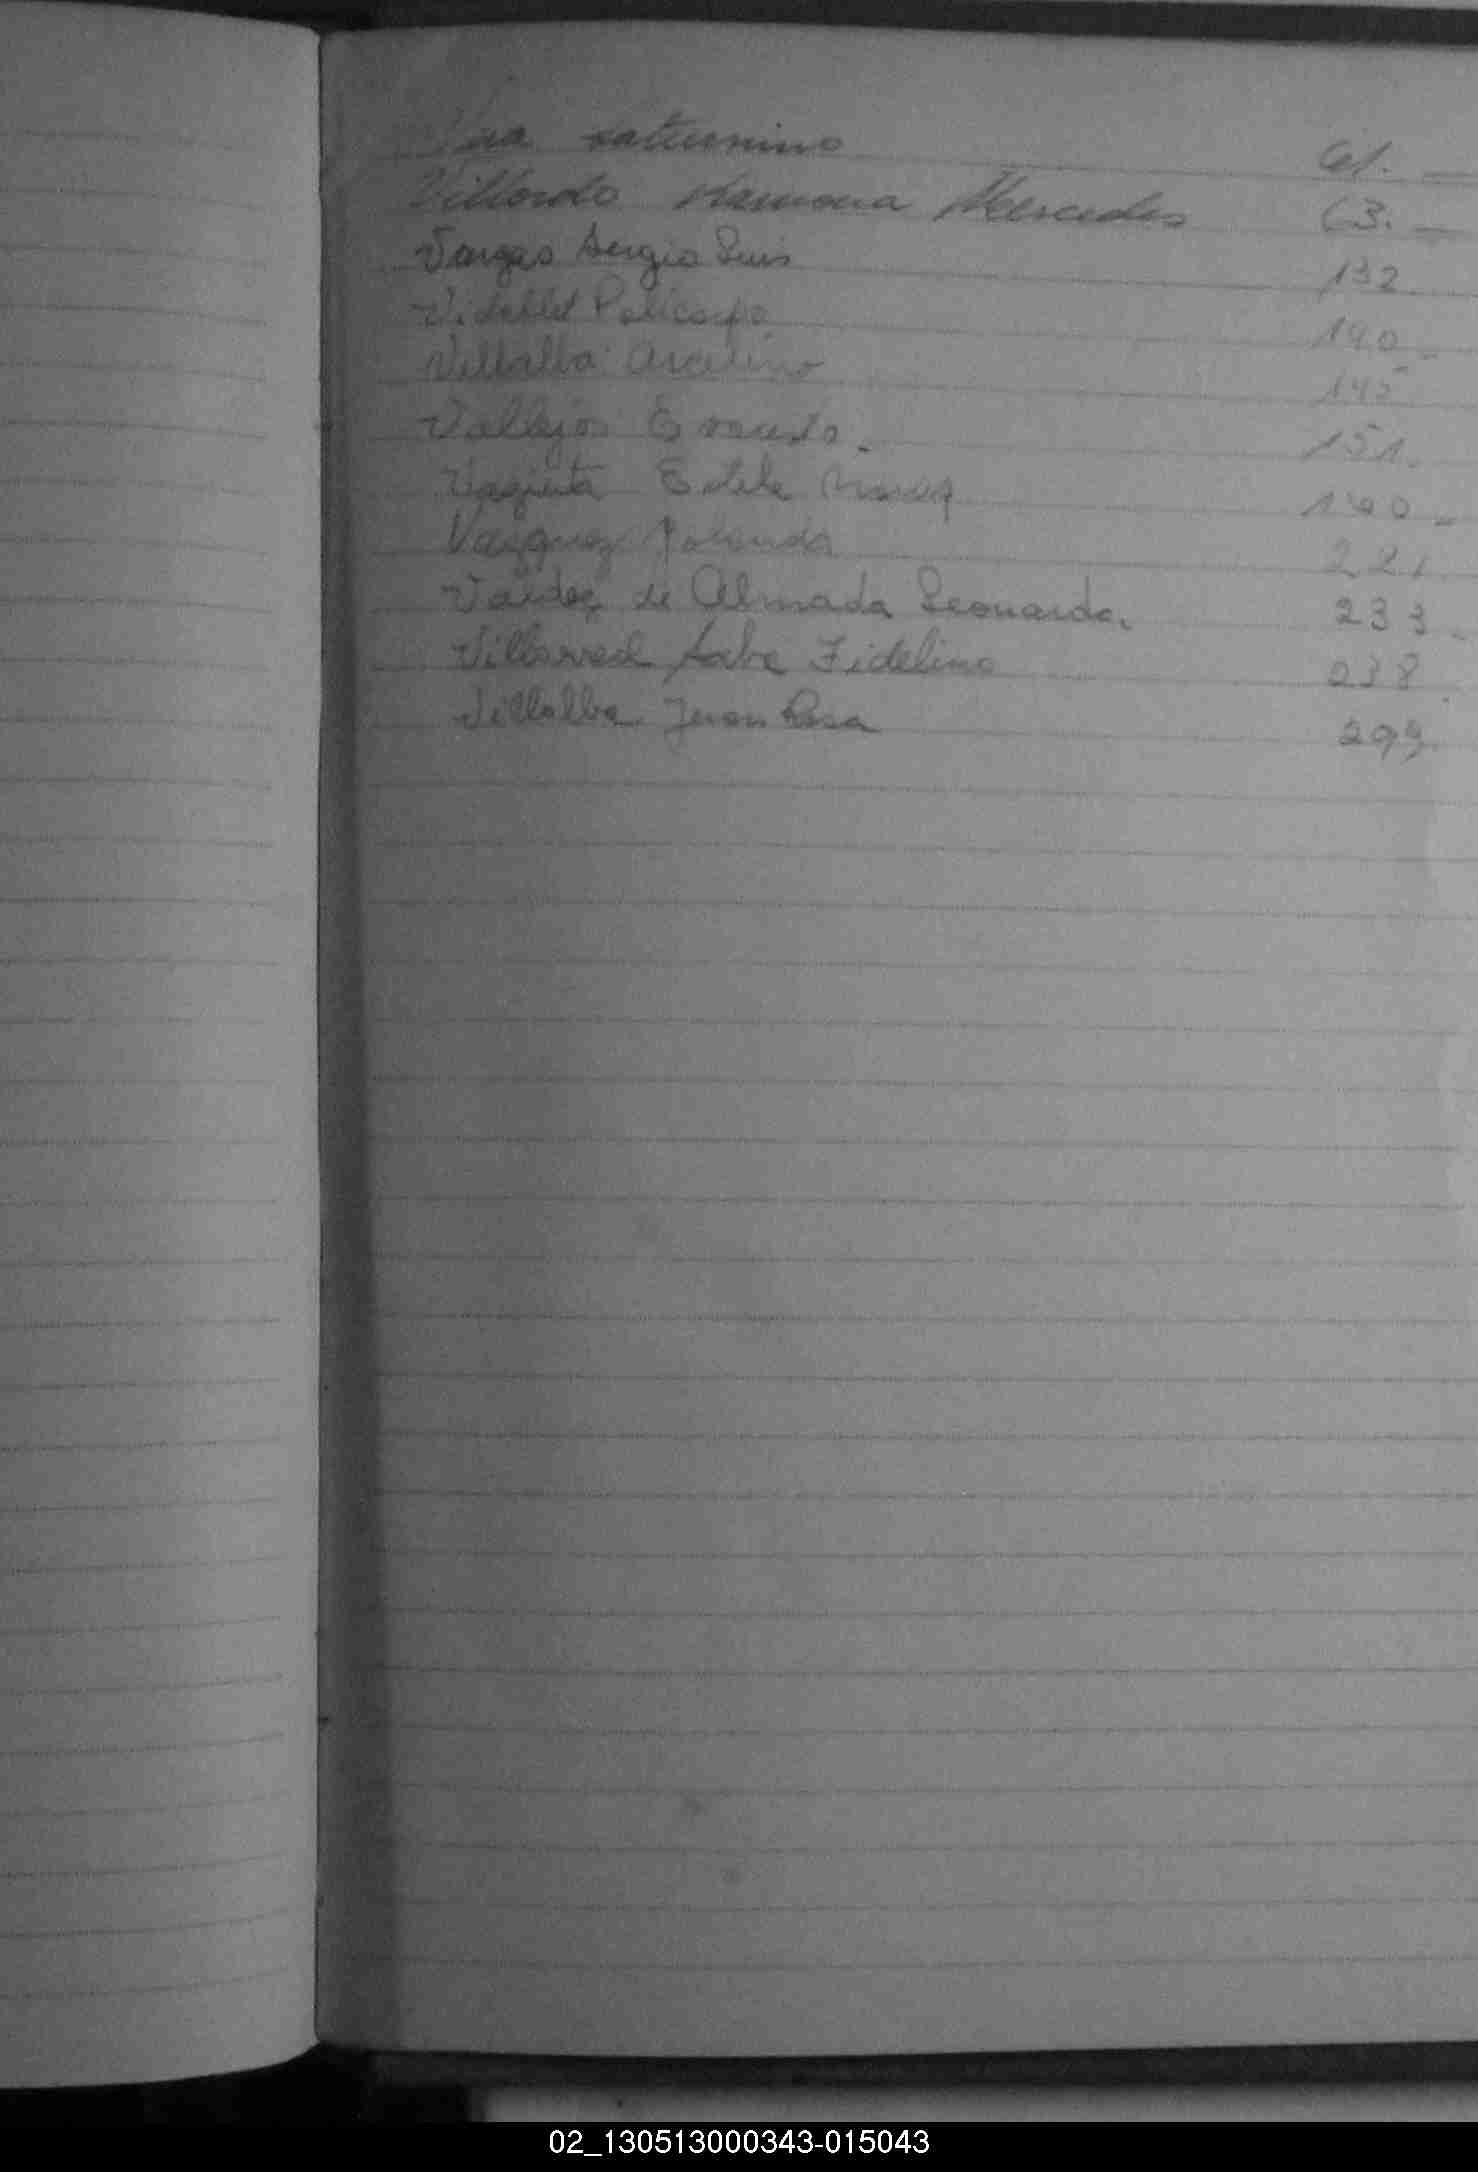 Vera saturnino 61. —
Villordo Ramona Mercedes 63. —
Vargas Sergio Luis 132
Policarpo 140 -
Villalba Avelino 145
Vallejos Ernesto. 151.
Estela 190 -
Vazquez Yolanda 221
Valdez de Almada Leonarda. 233.
Villarreal Fidelino 238.
Villalba Juan Rosa 299.
02_130513000343-015043